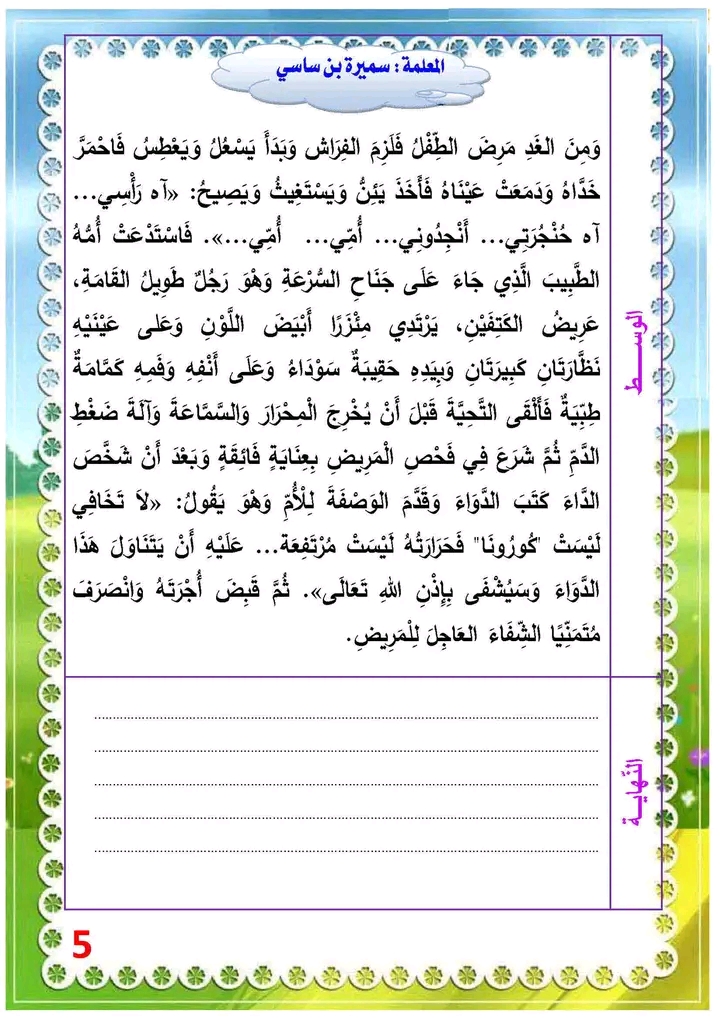 المعلمة : سميرة بن ساسي
وَمِنَ الغَدِ مَرِضَ الطِّفْلُ فَلَزِمَ الفِرَاش وَبَدَأَ يَسْعُلُ وَيَعْطِسُ فَاحْمَرَّ
خَدَّاهُ وَدَمَعَتْ عَيْنَاهُ فَأَخَذَ يَئِنُّ وَيَسْتَغِيثُ وَيَصِيحُ: «آه رَأْسِي...
آه حُنْجُرَتِي... أَنْجِدُونِي... أُمِّي... أُمِّي...». فَاسْتَدْعَتْ أُمُّهُ
الطَّبِيبَ الَّذِي جَاءَ عَلَى جَنَاحِ السُّرْعَةِ وَهْوَ رَجُلٌ طَوِيلُ القَامَةِ،
عَرِيضُ الكَتِفَيْنِ، يَرْتَدِي مِئْزَرًا أَبْيَضَ اللَّوْنِ وَعَلى عَيْنَيْهِ
نَظَّارَتَانِ كَبِيرَتَانِ وَبِيَدِهِ حَقِيبَةٌ سَوْدَاءُ وَعَلَى أَنْفِهِ وَفَمِهِ كَمَّامَةٌ
طِبِّيَةٌ فَأَلْقَى التَّحِيَّةَ قَبْلَ أَنْ يُخْرِجَ الْمِحْرَارَ وَالسَّمَّاعَةَ وَآلَةَ ضَغْطِ
الدَّمِّ ثُمَّ شَرَعَ فِي فَحْصِ الْمَرِيضِ بِعِنَايَةٍ فَائِقَةٍ وَبَعْدَ أَنْ شَخَّصَ
الدَّاءَ كَتَبَ الدَّوَاءَ وَقَدَّمَ الوَصْفَةَ لِلْأُمِّ وَهْوَ يَقُولُ: «لاَ تَخَافِي
لَيْسَتْ "كُورُونَا" فَحَرَارَتُهُ لَيْسَتْ مُرْتَفِعَة... عَلَيْهِ أَنْ يَتَنَاوَلَ هَذَا
الدَّوَاءَ وَسَيُشْفَى بِإِذْنِ اللهِ تَعَالَى». ثُمَّ قَبِضَ أُجْرَتَهُ وَانْصَرَفَ
مُتَمَنِّيًا الشِّفَاءَ العَاجِلَ لِلْمَرِيضِ.
الوســـط
النّهايـــة
5